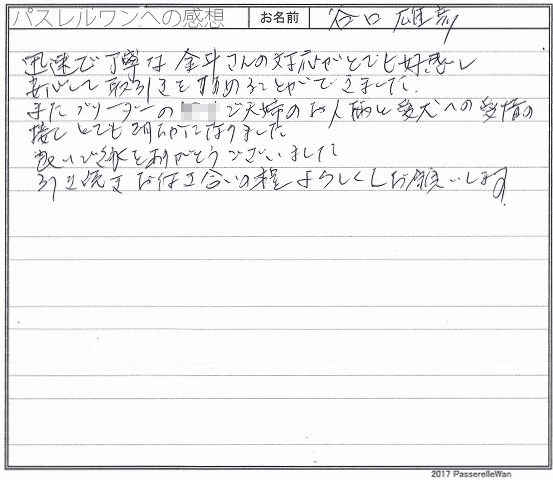 パスレルワンへの感想 お名前 谷口 雄
迅速で丁寧な金斗さんの対応がとても好感し
安心して取引きを進めることができました。
またブリーダーの ご夫婦のお人柄と愛犬への愛情の
接し とても なりました
良いご縁をありがとうございました
引き続きお付き合いの程よろしくお願いします
2017 PasserelleWan